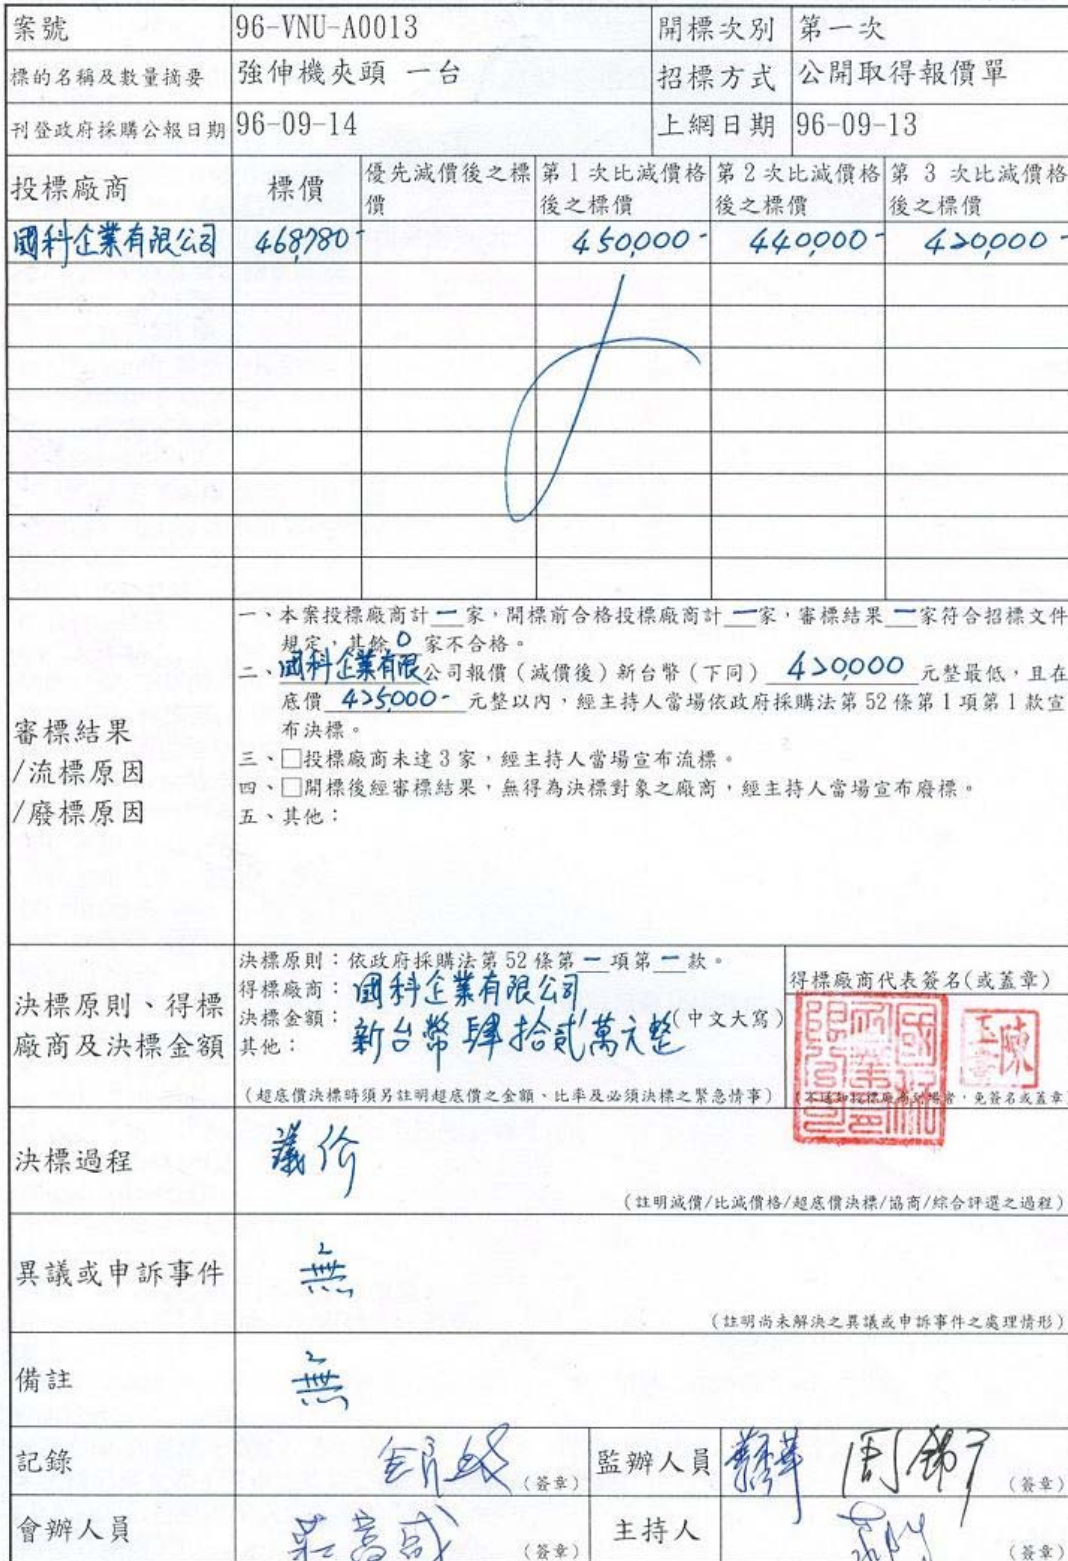 案號 96-VNU-A0013 開標次別 第一次
標的名稱及數量摘要 強伸機夾頭 一台 招標方式 公開取得報價單
刊登政府採購公報日期 96-09-14 上網日期 96-09-13
投標廠商 標價 優先減價後之標價 第1次比減價格後之標價 第2次比減價格後之標價 第 3 次比減價格後之標價
國科企業有限公司 468,780- 450,000- 440,000- 420,000-
審標結果
/流標原因
/廢標原因
一、本案投標廠商計一家,開標前合格投標廠商計一家,審標結果一家符合招標文件
規定,其餘0家不合格。
二、國科企業有限公司報價(減價後)新台幣(下同)420,000元整最低,且在
底價425,000-元整以內,經主持人當場依政府採購法第52條第1項第1款宣
布決標。
三、□投標廠商未達3家,經主持人當場宣布流標。
四、□開標後經審標結果,無得為決標對象之廠商,經主持人當場宣布廢標。
五、其他:
決標原則、得標
廠商及決標金額
決標原則:依政府採購法第52條第一項第一款。
得標廠商:國科企業有限公司
決標金額:新台幣肆拾貳萬元整(中文大寫)
其他:
(超底價決標時須另註明超底價之金額、比率及必須決標之緊急情事)
得標廠商代表簽名(或蓋章)
免簽名或蓋章
決標過程 議价
(註明減價/比減價格/超底價決標/協商/綜合評選之過程)
異議或申訴事件 無
(註明尚未解決之異議或申訴事件之處理情形)
備註 無
記錄 (簽章) 監辦人員 (簽章)
會辦人員 (簽章) 主持人 (簽章)